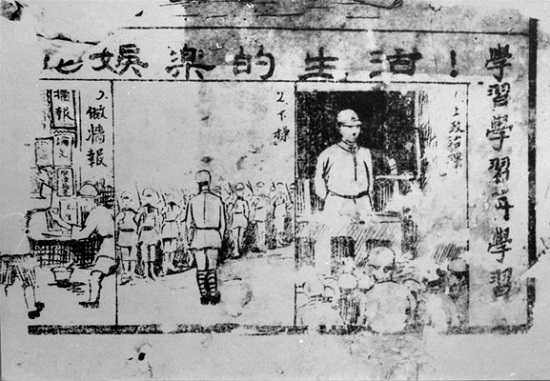 學習學習再學習
娛樂的生活！
1.上政治課
2.下操
3.做墙報
論文